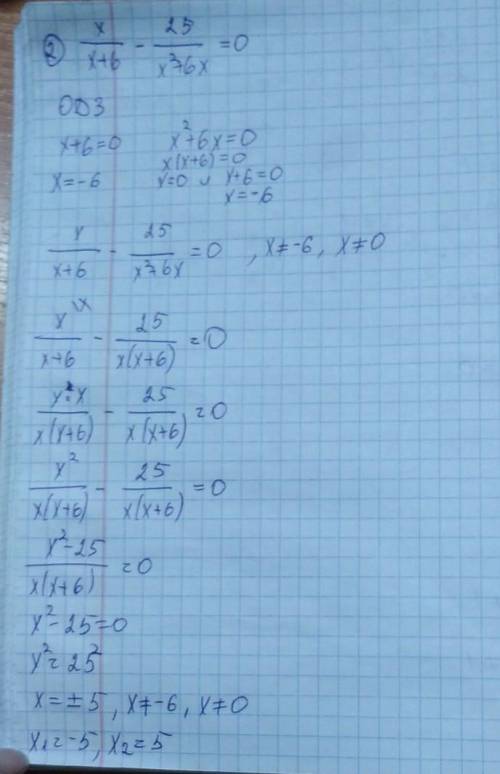 2) x/(x+6) - 25/(x²+6x) = 0
ОДЗ
x+6=0 x²+6x=0
x(x+6)=0
x=-6 x=0 и x+6=0
x=-6
x/(x+6) - 25/(x²+6x) = 0 , x≠-6, x≠0
x\x/(x+6) - 25/(x(x+6)) = 0
x·x/(x(x+6)) - 25/(x(x+6)) = 0
x²/(x(x+6)) - 25/(x(x+6)) = 0
(x²-25)/(x(x+6)) = 0
x²-25=0
x²=25²
x=±5, x≠-6, x≠0
x₁=-5, x₂=5